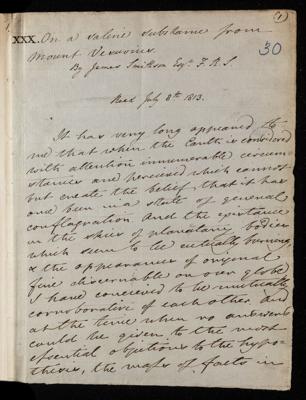 (1)
XXX. On a saline substance from
Mount Vesuvius.
30
By James Smithson Esqr. F.R.S.
Read July 8th. 1813.
It has very long appeared to
me that when the Earth is considered
with attention innumerable circum
stances are perceived which cannot
but create the belief, that it has
once been in a state of general
conflagration. And the existence
in the skies of planetary bodies
which seem to be actually burning,
& the appearances of original
fire discernable on our globe
I have conceived to be mutually
corroborative of each other. And
at the time when no answers
could be given to the most
essential objections to the hypo-
thesis, the mass of facts in